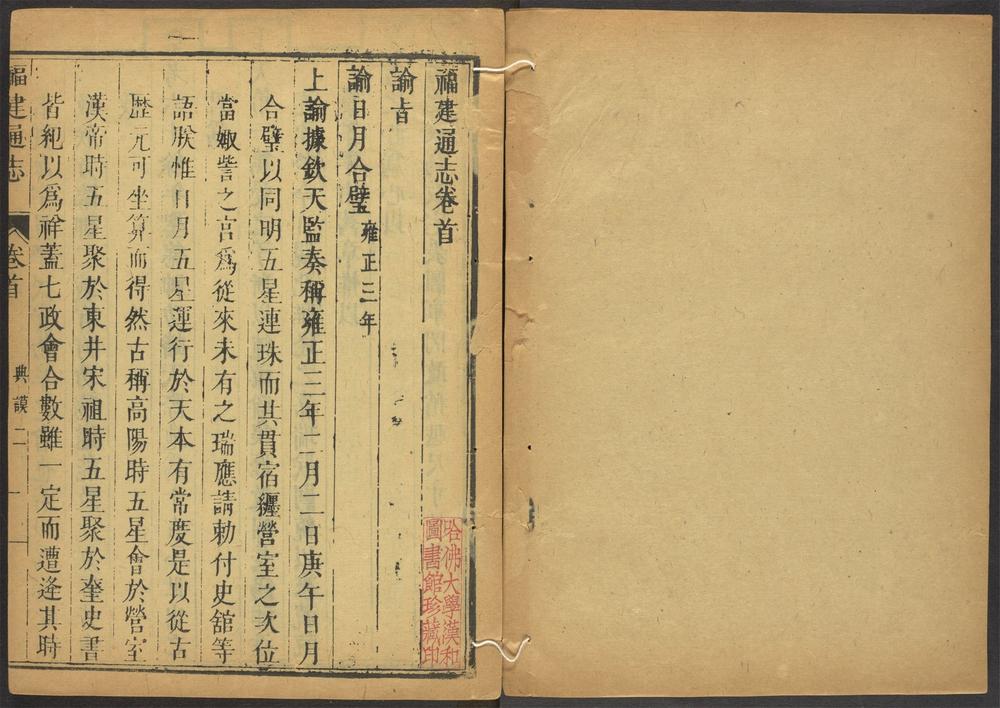 福建通志卷首
諭旨
諭日月合璧雍正三年
上諭據欽天監奏稱雍正三年二月二日庚午日月
合璧以同明五星連珠而共貫宿纏營室之次位
當娵訾之宫爲從來未有之瑞應請勅付史舘等
語朕惟日月五星運行於天本有常度是以從古
歴元可坐算而得然古稱高陽時五星會於營室
漢帝時五星聚於東井宋祖時五星聚於奎史書
皆紀以爲祥蓋七政會合數雖一定而遭逢其時
福建通志 卷首 典謨二 一
哈佛大學漢和
圖書館珍藏印